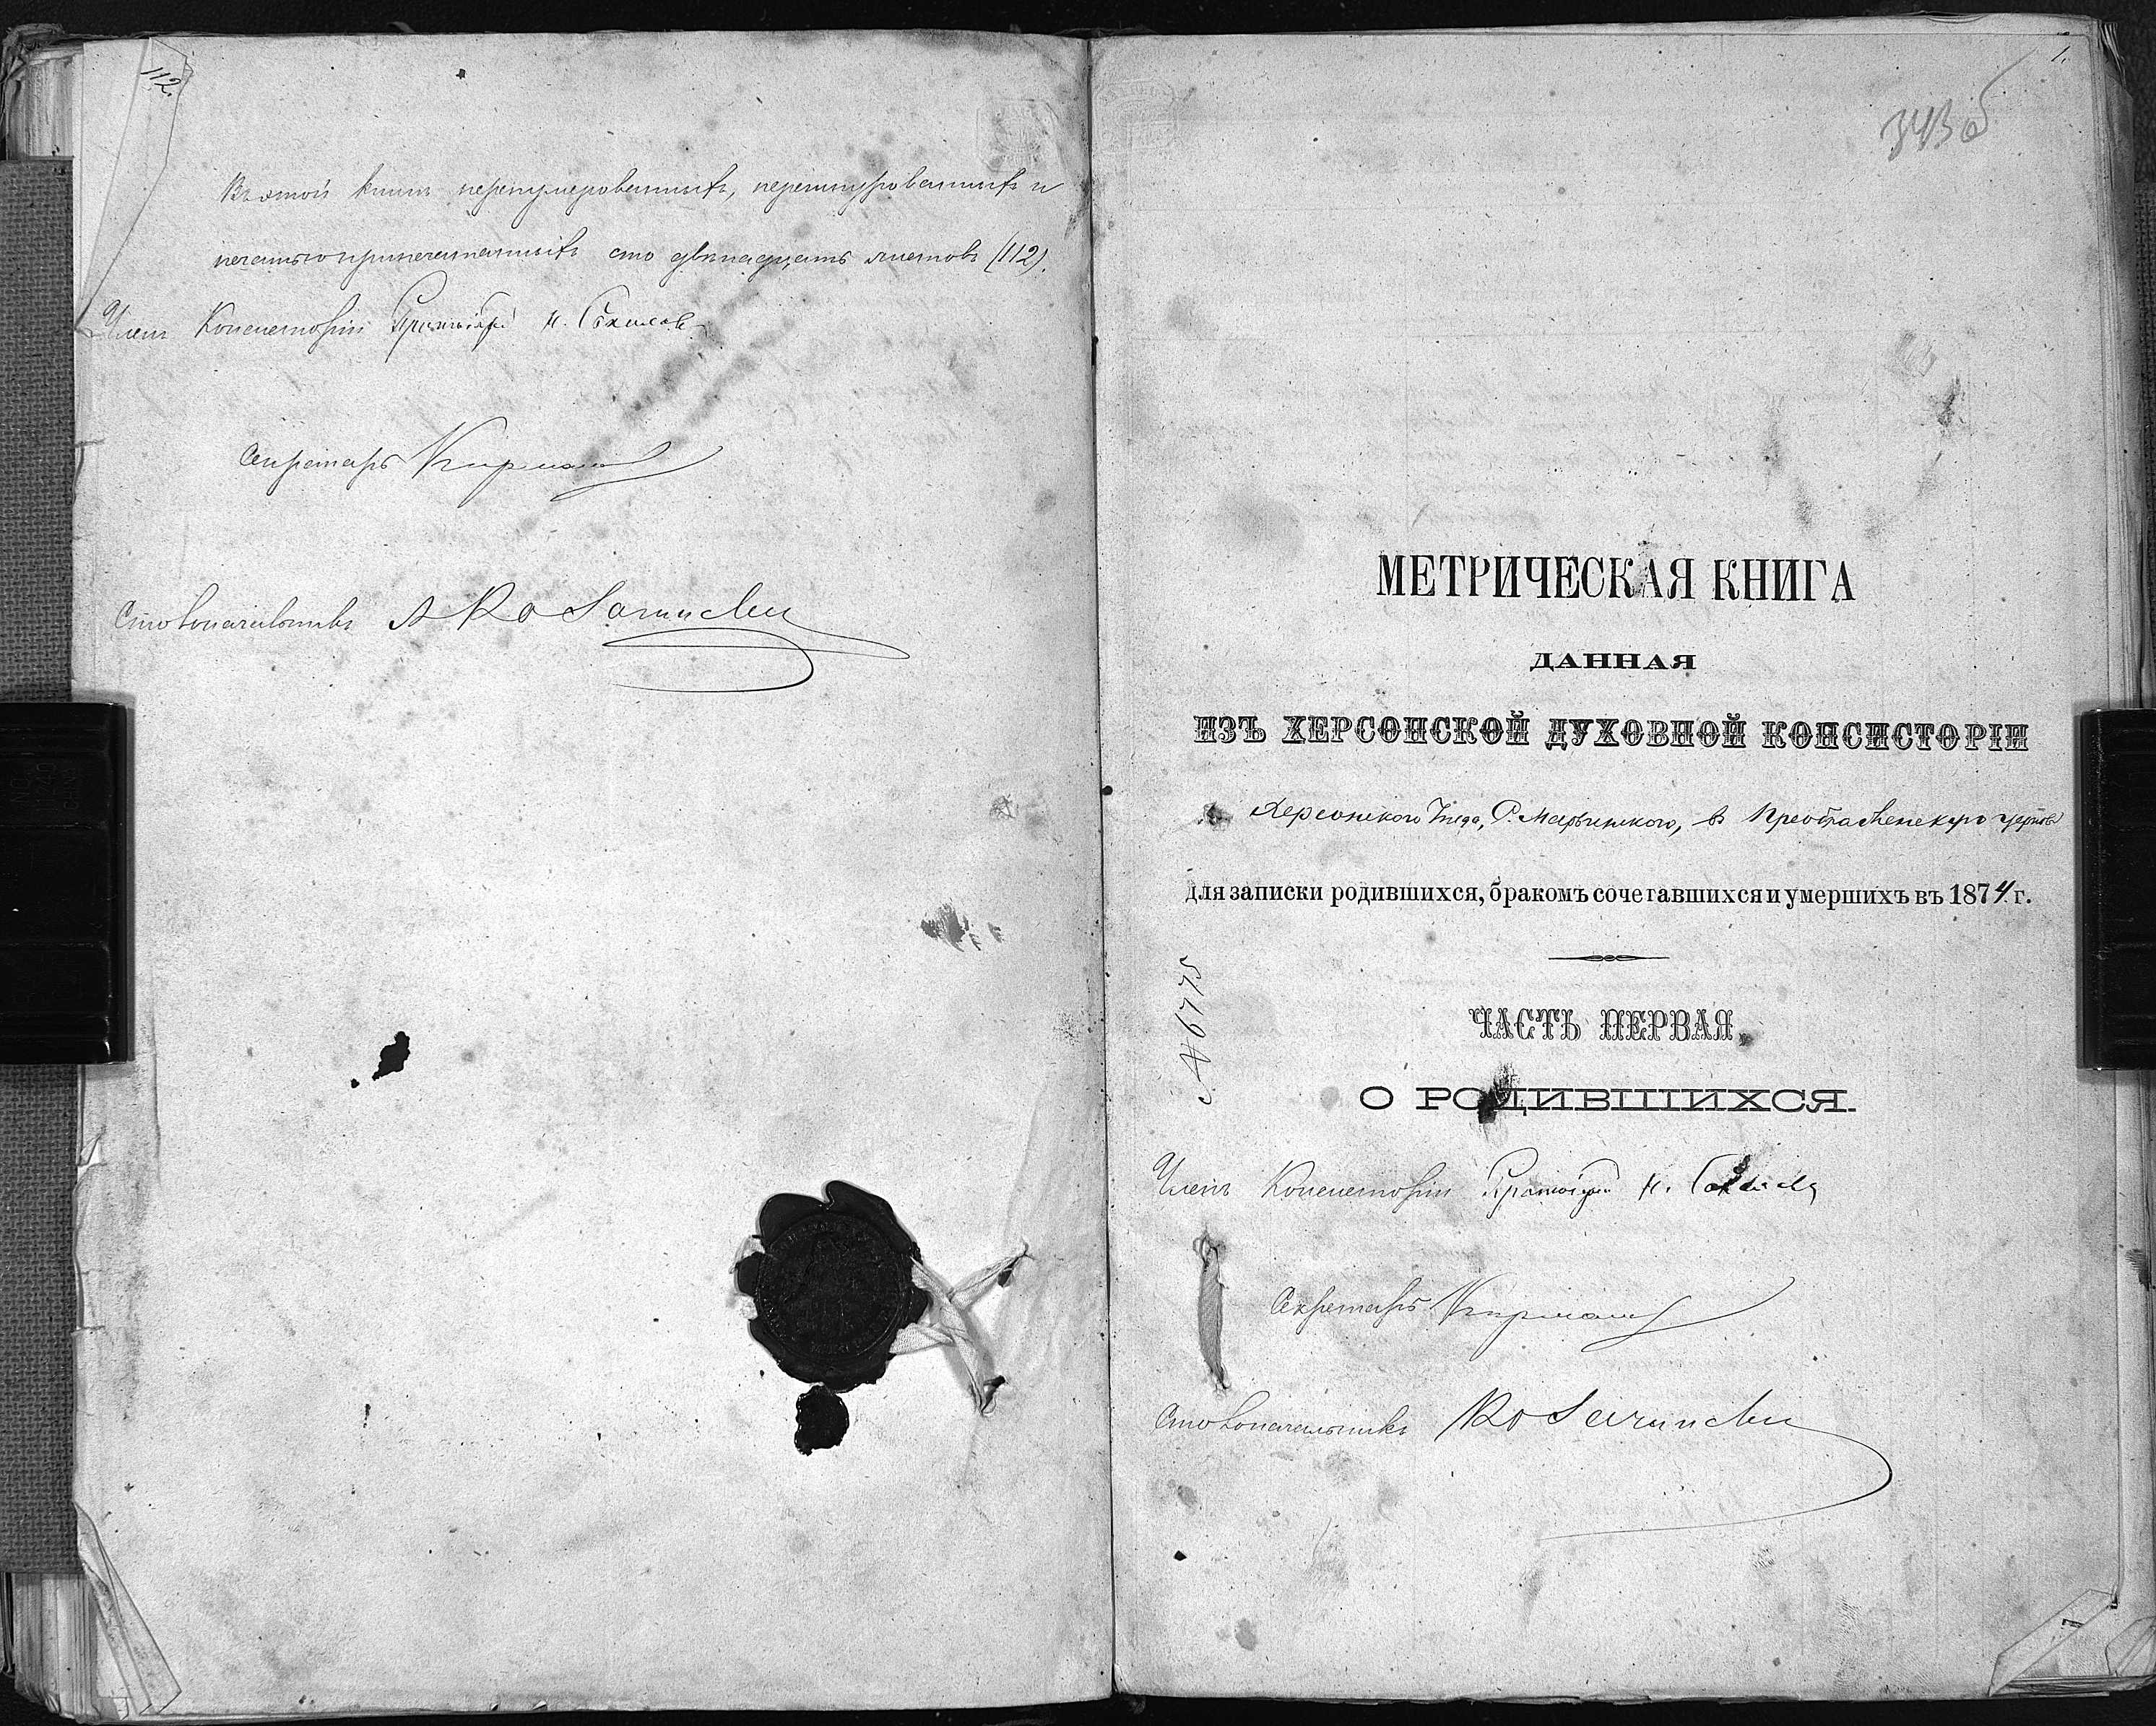 112.
Въ этой книгѣ перенумерованныхъ, перешнурованныхъ и
печатью припечатанныхъ сто двѣнадцать листовъ (112).
Членъ Консисторіи Протоіерей
Секретарь
Столоначальникъ
1.
343 б
МЕТРИЧЕСКАЯ КНИГА
ДАННАЯ
ИЗЪ ХЕРСОНСКОЙ ДУХОВНОЙ КОНСИСТОРІИ
Херсонскаго Уѣзда, С. Марьинскаго, въ Преображенскую церковь
для записки родившихся, бракомъ сочетавшихся и умершихъ въ 1874 г.
№ 6775
ЧАСТЬ ПЕРВАЯ,
О РОДИВШИХСЯ.
Членъ Консисторіи Протоіерей
Секретарь
Столоначальникъ